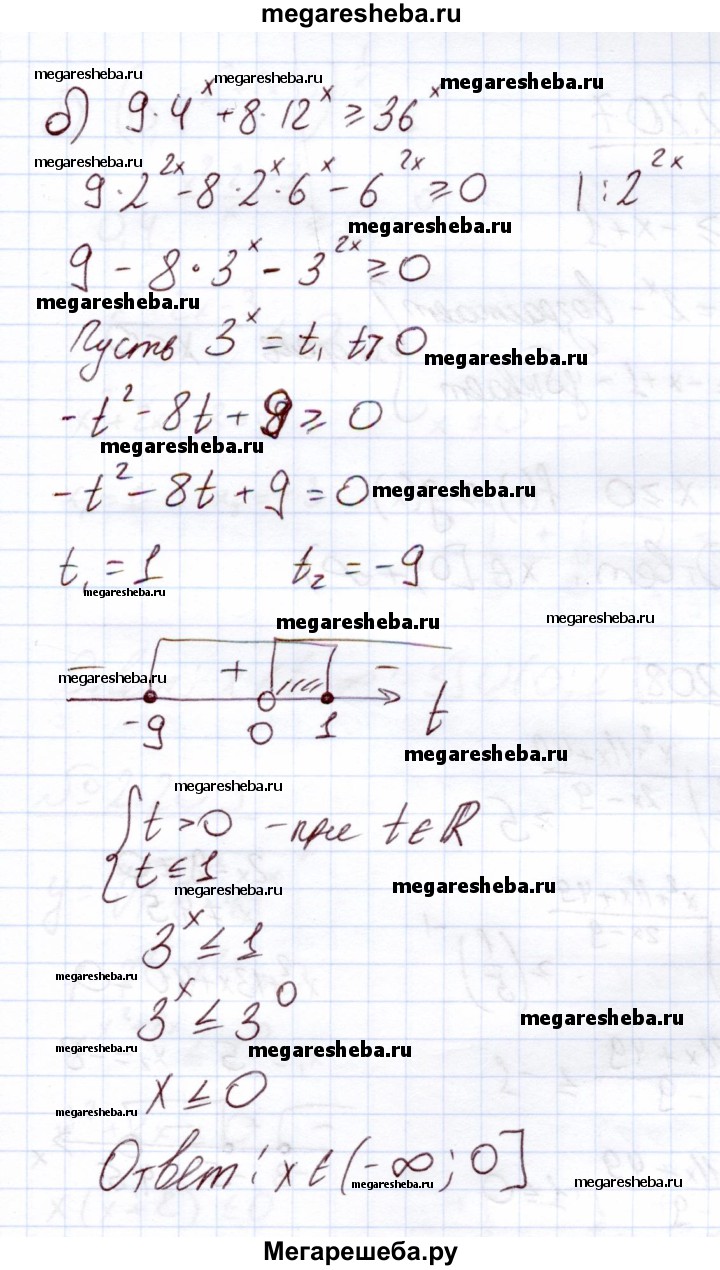 megaresheba.ru
megaresheba.ru megaresheba.ru megaresheba.ru
б) 9·4^x + 8·12^x ≥ 36^x
megaresheba.ru
9·2^2x - 8·2^x·6^x - 6^2x ≥ 0 | : 2^2x
megaresheba.ru
9 - 8·3^x - 3^2x ≥ 0
megaresheba.ru
Пусть 3^x = t, t > 0
megaresheba.ru
-t² - 8t + 9 ≥ 0
megaresheba.ru
-t² - 8t + 9 = 0
megaresheba.ru
t₁ = 1 t₂ = -9
megaresheba.ru
megaresheba.ru megaresheba.ru
− + −
megaresheba.ru
-9 0 1 t
megaresheba.ru
megaresheba.ru
{ t > 0 - при t ∈ R
t ≤ 1
megaresheba.ru megaresheba.ru
3^x ≤ 1
megaresheba.ru
3^x ≤ 3^0
megaresheba.ru
megaresheba.ru megaresheba.ru
x ≤ 0
megaresheba.ru
Ответ: x ∈ (-∞; 0]
megaresheba.ru megaresheba.ru
Мегарешеба.ру